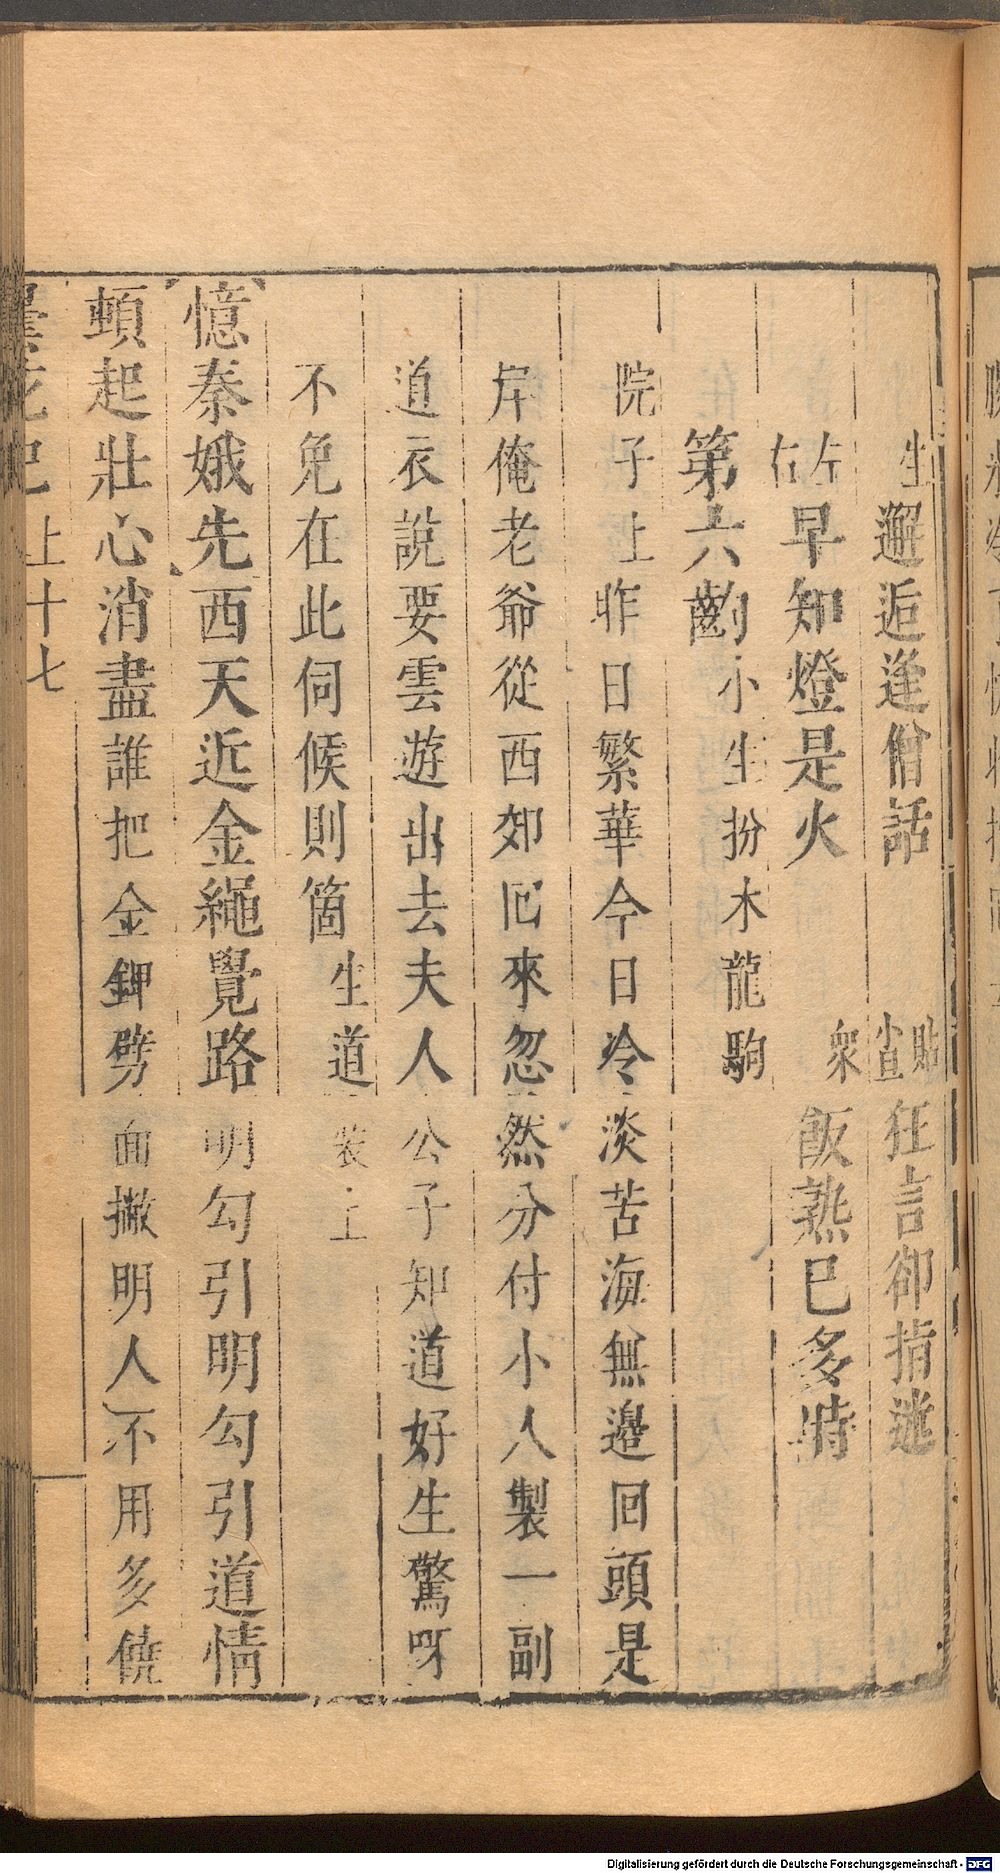 生邂逅逢僧話 貼 狂言卻指迷
左右早知燈是火 衆 飯熟已多時
第六齣 小生扮木龍駒
院子上昨日繁華今日冷淡苦海無邉回頭是
岸俺老爺從西郊囘來忽然分付小人製一副
道衣說要雲遊出去夫人公子知道好生驚呀
不免在此伺候則箇 生道裝上
憶秦娥先西天近金繩覺路明勾引明勾引道情
頓起壯心消盡誰把金鉀劈面撇明人不用多饒
曇花記 上 十七
Digitalisierung gefördert durch die Deutsche Forschungsgemeinschaft - DFG